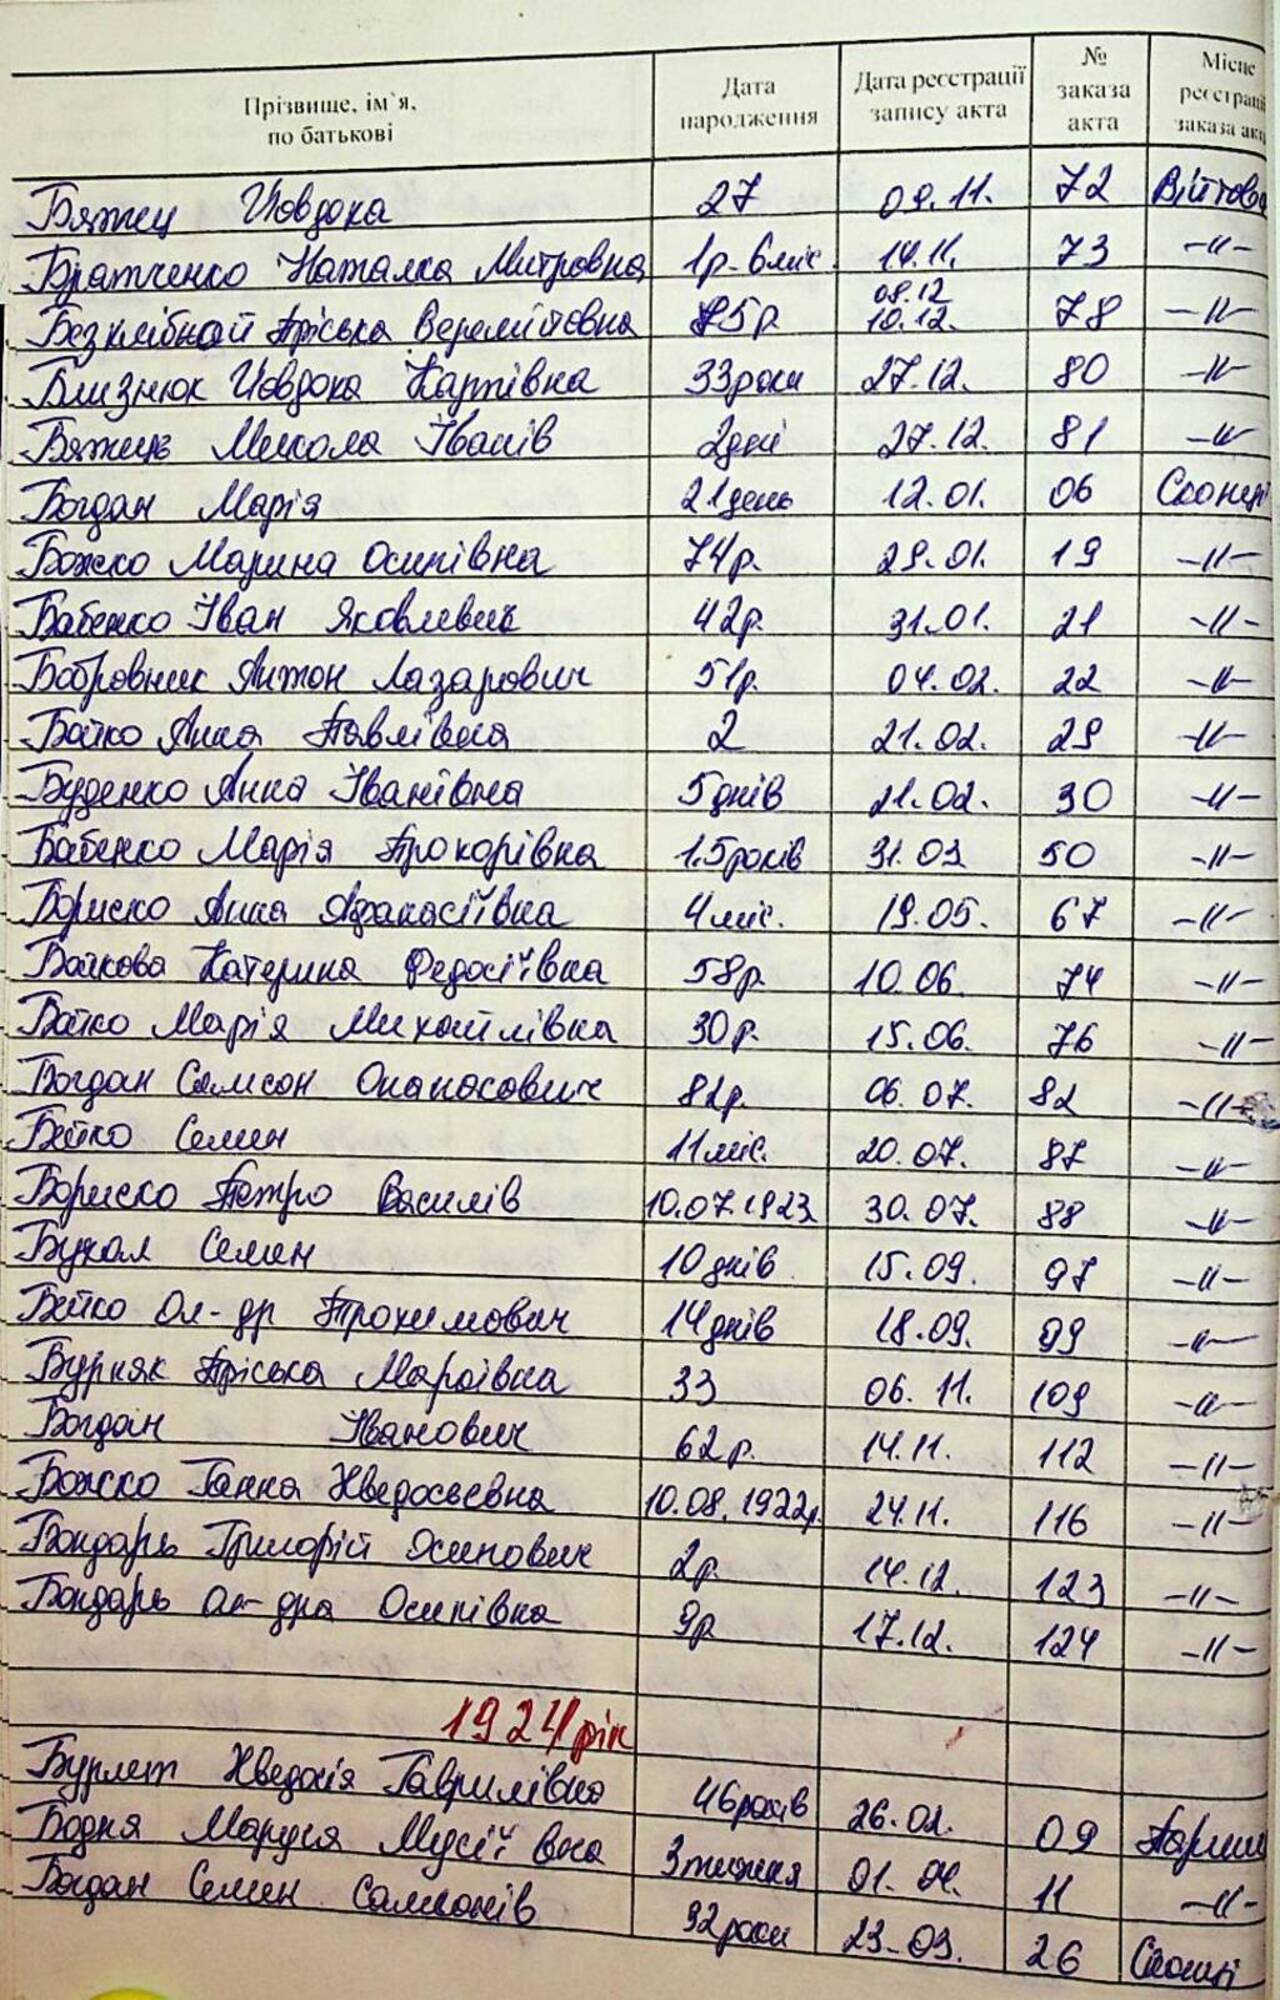 Прізвище, ім`я, по батькові Дата народження Дата реєстрації запису акта № заказа акта Місце реєстрації заказа акт
Бяжец Йовдока 27 09.11. 72 Війтова
Братченко Наталка Митровна 1р-6міс 14.11. 73 -"-
08.12
Безклібной Пріська Веремійовна 75р 10.12. 78 -"-
Близнюк Йовдока Карпівна 33роки 27.12. 80 -"-
Бяжець Микола Іванів 2дні 27.12. 81 -"-
Богдан Марія 21день 12.01. 06
Божко Марина Осипівна 74р. 29.01. 19 -"-
Бабенко Іван Яковлевич 42р. 31.01. 21 -"-
Бобровник Антон Лазарович 51р. 04.02. 22 -"-
Бойко Анна Павлівна 2 21.02. 29 -"-
Буденко Анна Іванівна 5днів 21.02. 30 -"-
Бабенко Марія Прокорівна 1.5років 31.03 50 -"-
Бориско Анна Афанасіївна 4міс. 19.05. 67 -"-
Бойкова Катерина Федосіївна 58р. 10.06. 74 -"-
Бойко Марія Михайлівна 30р. 15.06. 76 -"-
Богдан Самсон Опанасович 82р. 06.07. 82 -"-
Бейко Семен 11міс. 20.07. 87 -"-
Бориско Петро Василів 10.07.1923 30.07. 88 -"-
Бухал Семен 10днів 15.09. 97 -"-
Бейко Ол-др Трохимович 14днів 18.09. 99 -"-
Бурняк Пріська Марківна 33 06.11. 109 -"-
Богдан Іванович 62р. 14.11. 112 -"-
Божко Ганна Хведосьевна 10.08.1922р. 24.11. 116 -"-
Бондарь Григорій Осипович 2р. 14.12. 123 -"-
Бондарь Ол-дра Осипівна 9р 17.12. 124 -"-
1924рік
Бурлет Хведосія Гаврилівна 46років 26.01. 09
Бодня Маруся Мусіївна 3тижня 01. 11 -"-
Богдан Семен Самсонів 32роки 23-03. 26